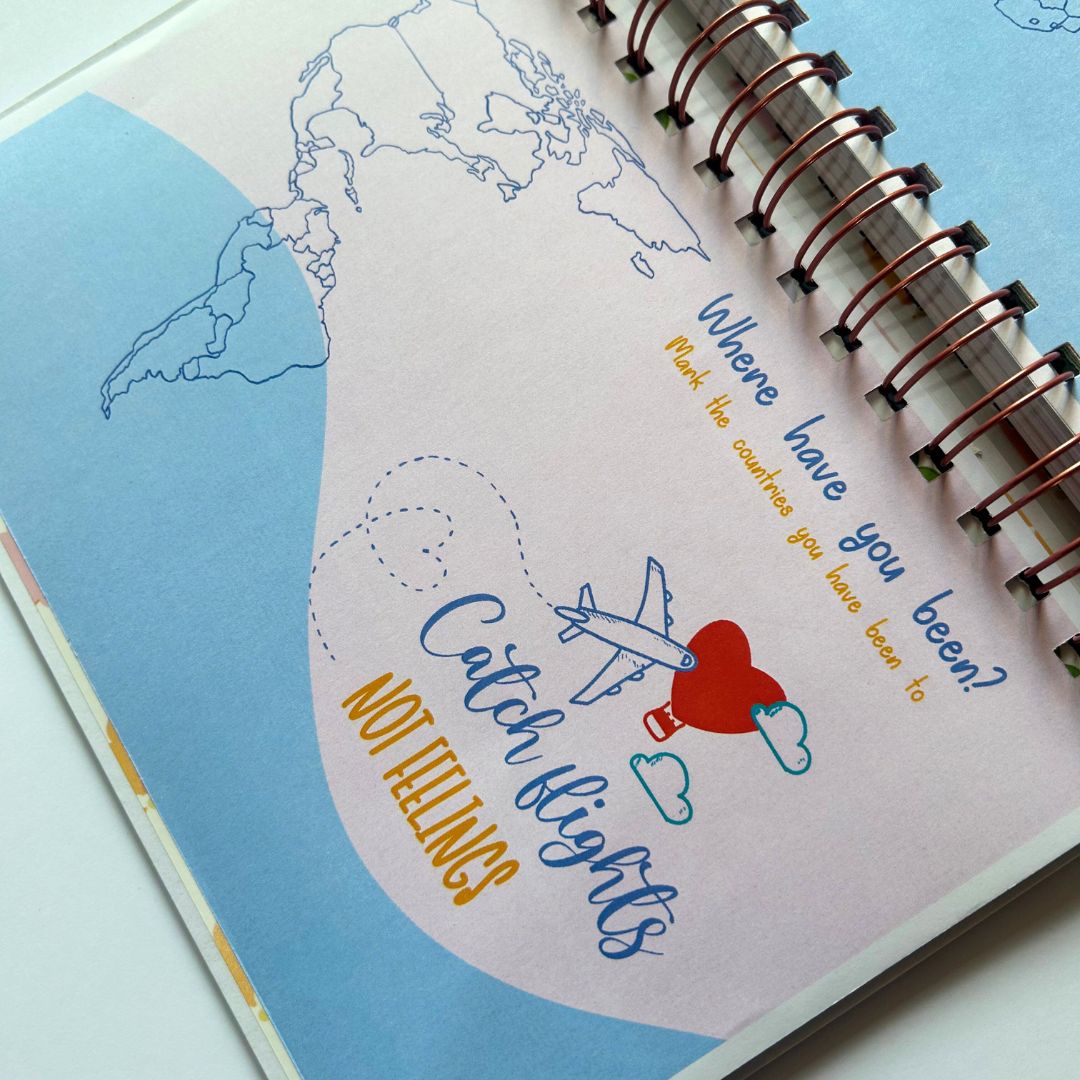 Where have you been?
Mark the countries you have been to
Catch flights
NOT FEELINGS